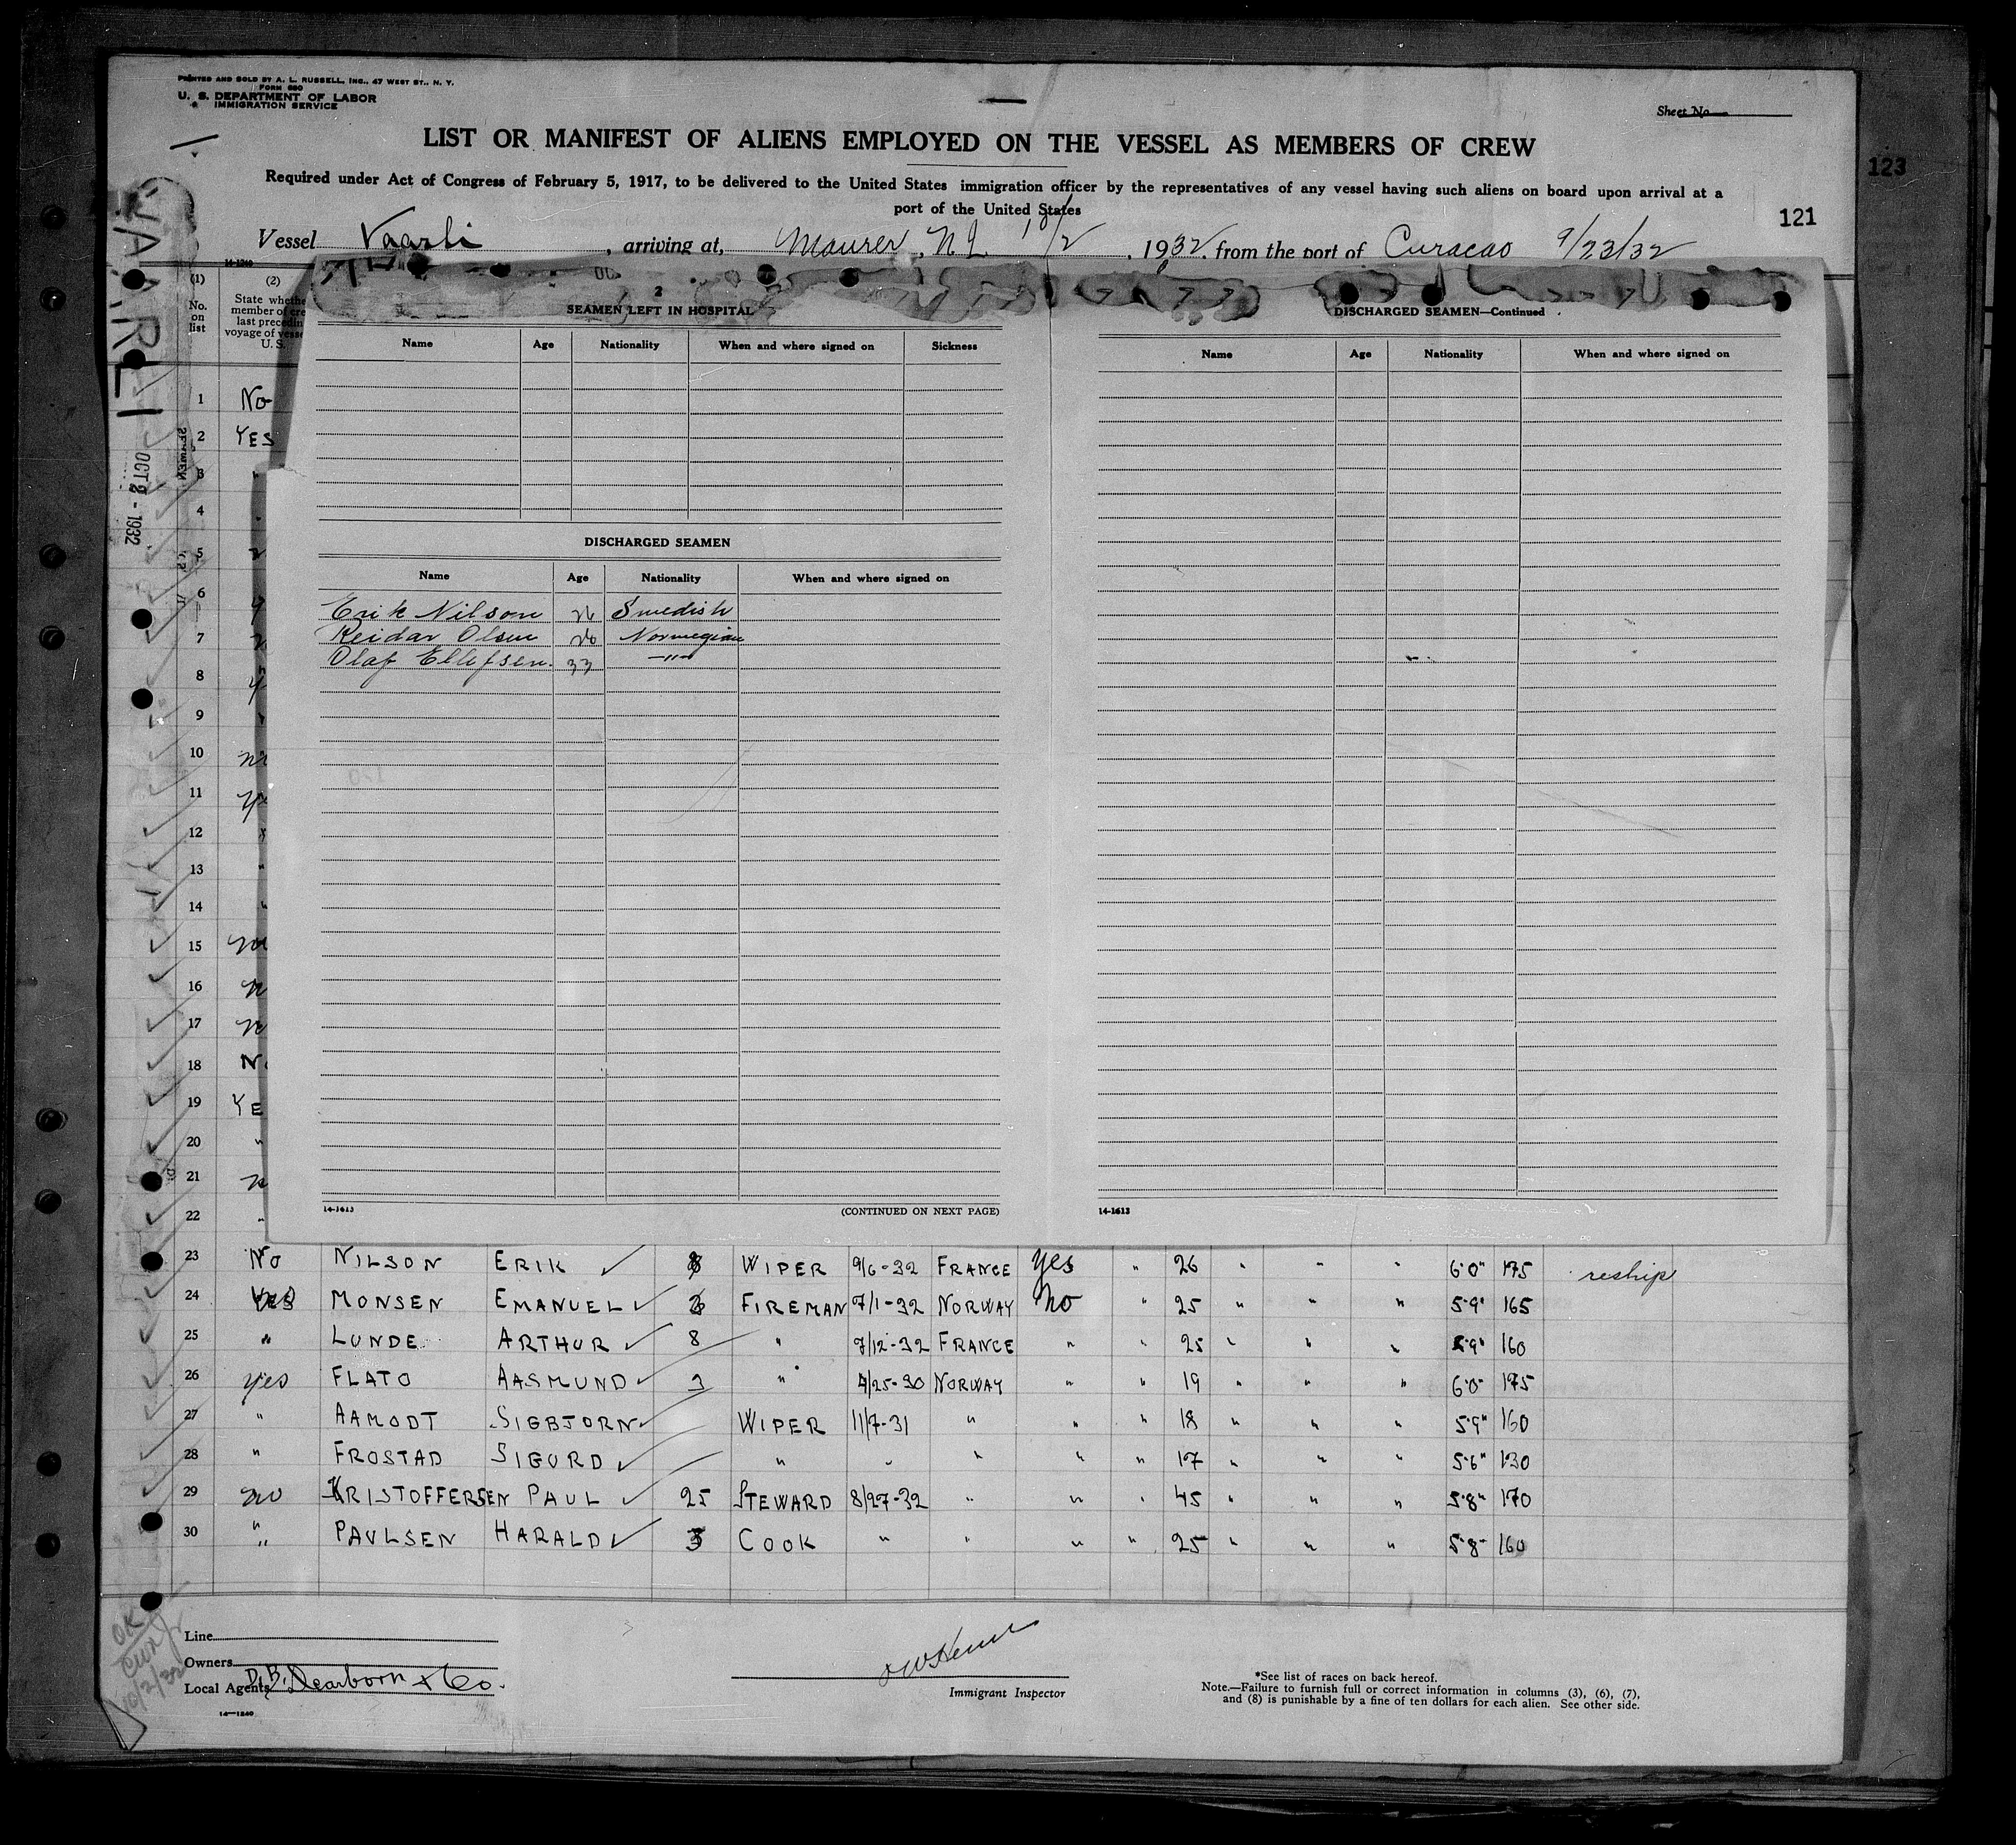 PRINTED AND SOLD BY A. L. RUSSELL, INC., 47 WEST ST., N. Y.
FORM 680
U. S. DEPARTMENT OF LABOR
IMMIGRATION SERVICE
Sheet No.
LIST OR MANIFEST OF ALIENS EMPLOYED ON THE VESSEL AS MEMBERS OF CREW
123
Required under Act of Congress of February 5, 1917, to be delivered to the United States immigration officer by the representatives of any vessel having such aliens on board upon arrival at a
port of the United States
121
Vessel Vaarli, arriving at, Maurer, NJ 10/2, 1932, from the port of Curacao 9/23/32
VAARLI
OCT 2 - 1932
14-1240
(1) (2)
No. on list
State whethe
member of cre
last precedin
voyage of vesse
U. S.
2
SEAMEN LEFT IN HOSPITAL
Name Age Nationality When and where signed on Sickness
DISCHARGED SEAMEN—Continued
Name Age Nationality When and where signed on
DISCHARGED SEAMEN
Name Age Nationality When and where signed on
Erik Nilson 26 Swedish
Reidar Olsen 26 Norwegian
Olaf Ellefsen. 33 —"—
14-1613 (CONTINUED ON NEXT PAGE)
14-1613
1 No
2 YES
3 "
4 "
5
6
7
8
9
10
11
12
13 "
14 "
15
16
17
18 No
19 YE
20 "
21
22 "
23 No NILSON ERIK ✓ 8 WIPER 9/6-32 FRANCE Yes " 26 " " " 6'0" 175 reship
24 Yes MONSEN EMANUEL ✓ 3 FIREMAN 7/1-32 NORWAY No " 25 " " " 5'9" 165
25 " LUNDE ARTHUR ✓ 8 " 7/12-32 FRANCE " " 25 " " " 5'9" 160
26 yes FLATO AASMUND ✓ 3 " 4/25-30 NORWAY " " 19 " " " 6'0" 175
27 " AAMODT SIGBJORN ✓ WIPER 11/7-31 " " " 18 " " " 5'9" 160
28 " FROSTAD SIGURD ✓ " " " " " 17 " " " 5'6" 130
29 no KRISTOFFERSEN PAUL ✓ 25 STEWARD 8/27-32 " " " 45 " " " 5'8" 170
30 " PAULSEN HARALD ✓ 3 COOK " " " " 25 " " " 5'8" 160
OK
10/2/32
Line
Owners
Local Agents D. B. Dearborn & Co.
14—1240
Immigrant Inspector
*See list of races on back hereof.
Note.—Failure to furnish full or correct information in columns (3), (6), (7),
and (8) is punishable by a fine of ten dollars for each alien. See other side.